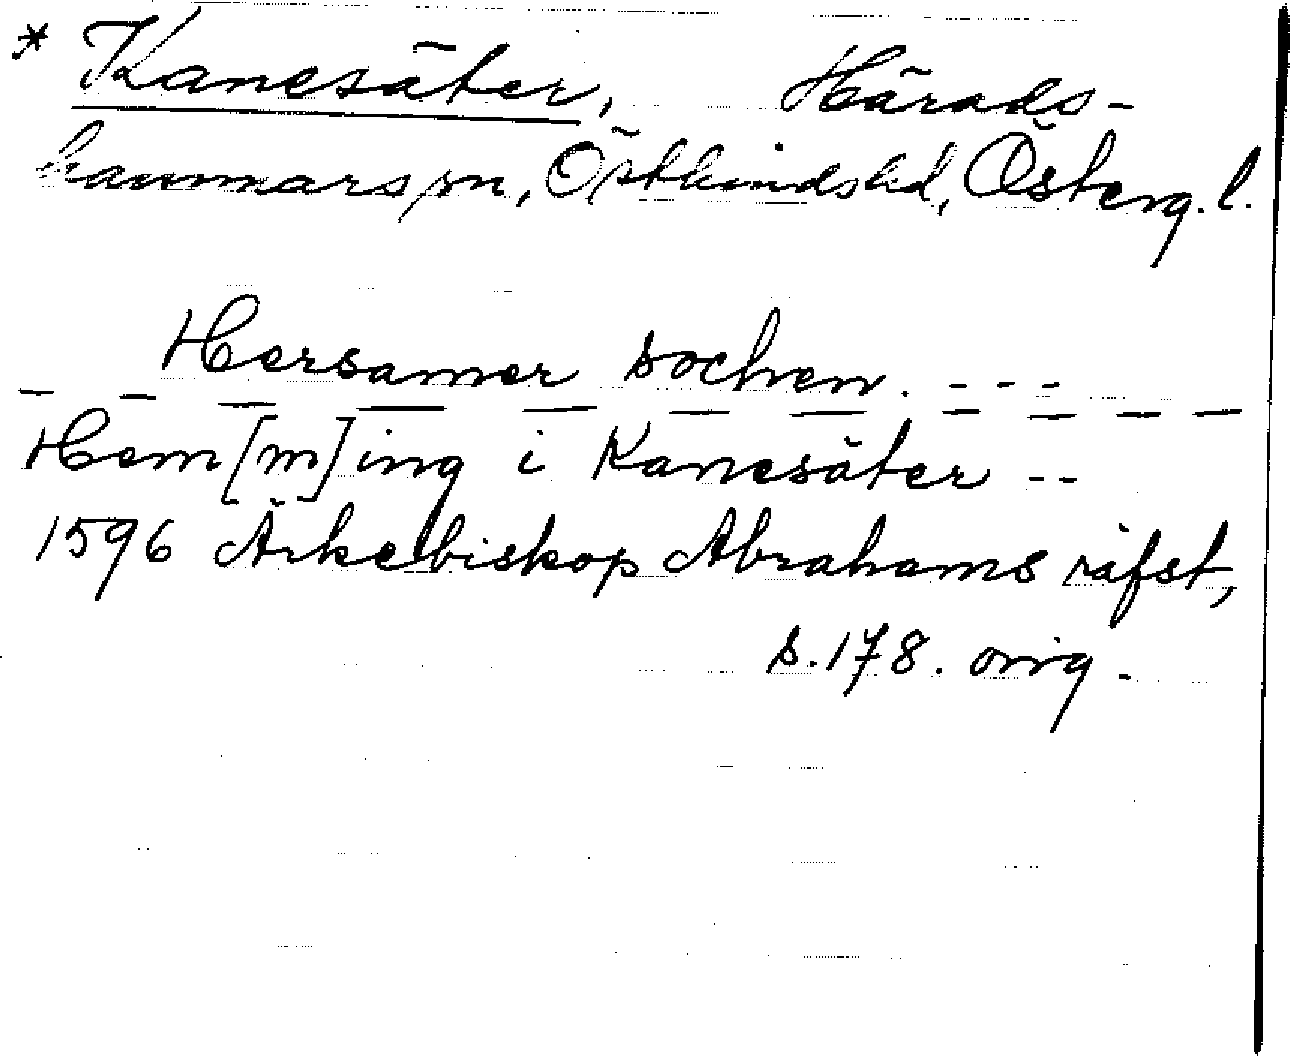 * Kanesäter, Härads-
hammars sn, Östkinds hd, Österg. l.
Hersamer sochen. - - -
— — — — — — — — — — —
Hem[m]ing i Kanesäter --
1596 Ärkebiskop Abrahams räfst,
s. 178. orig.